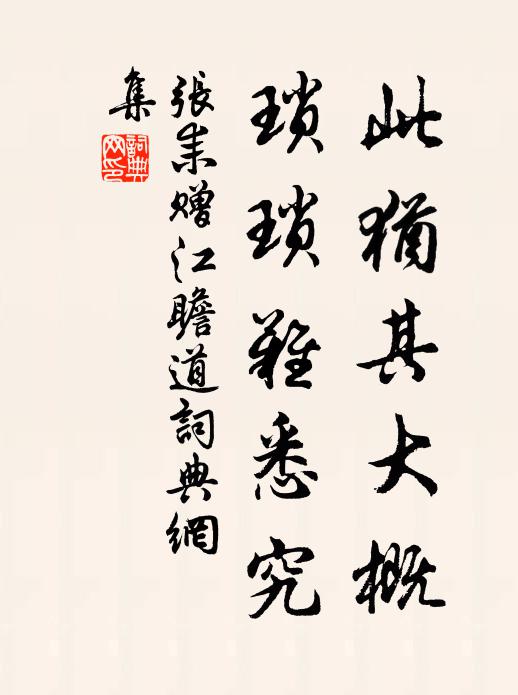 此猶其大概
瑣瑣難悉究
張耒贈江瞻道詞典網
集
詞典網印